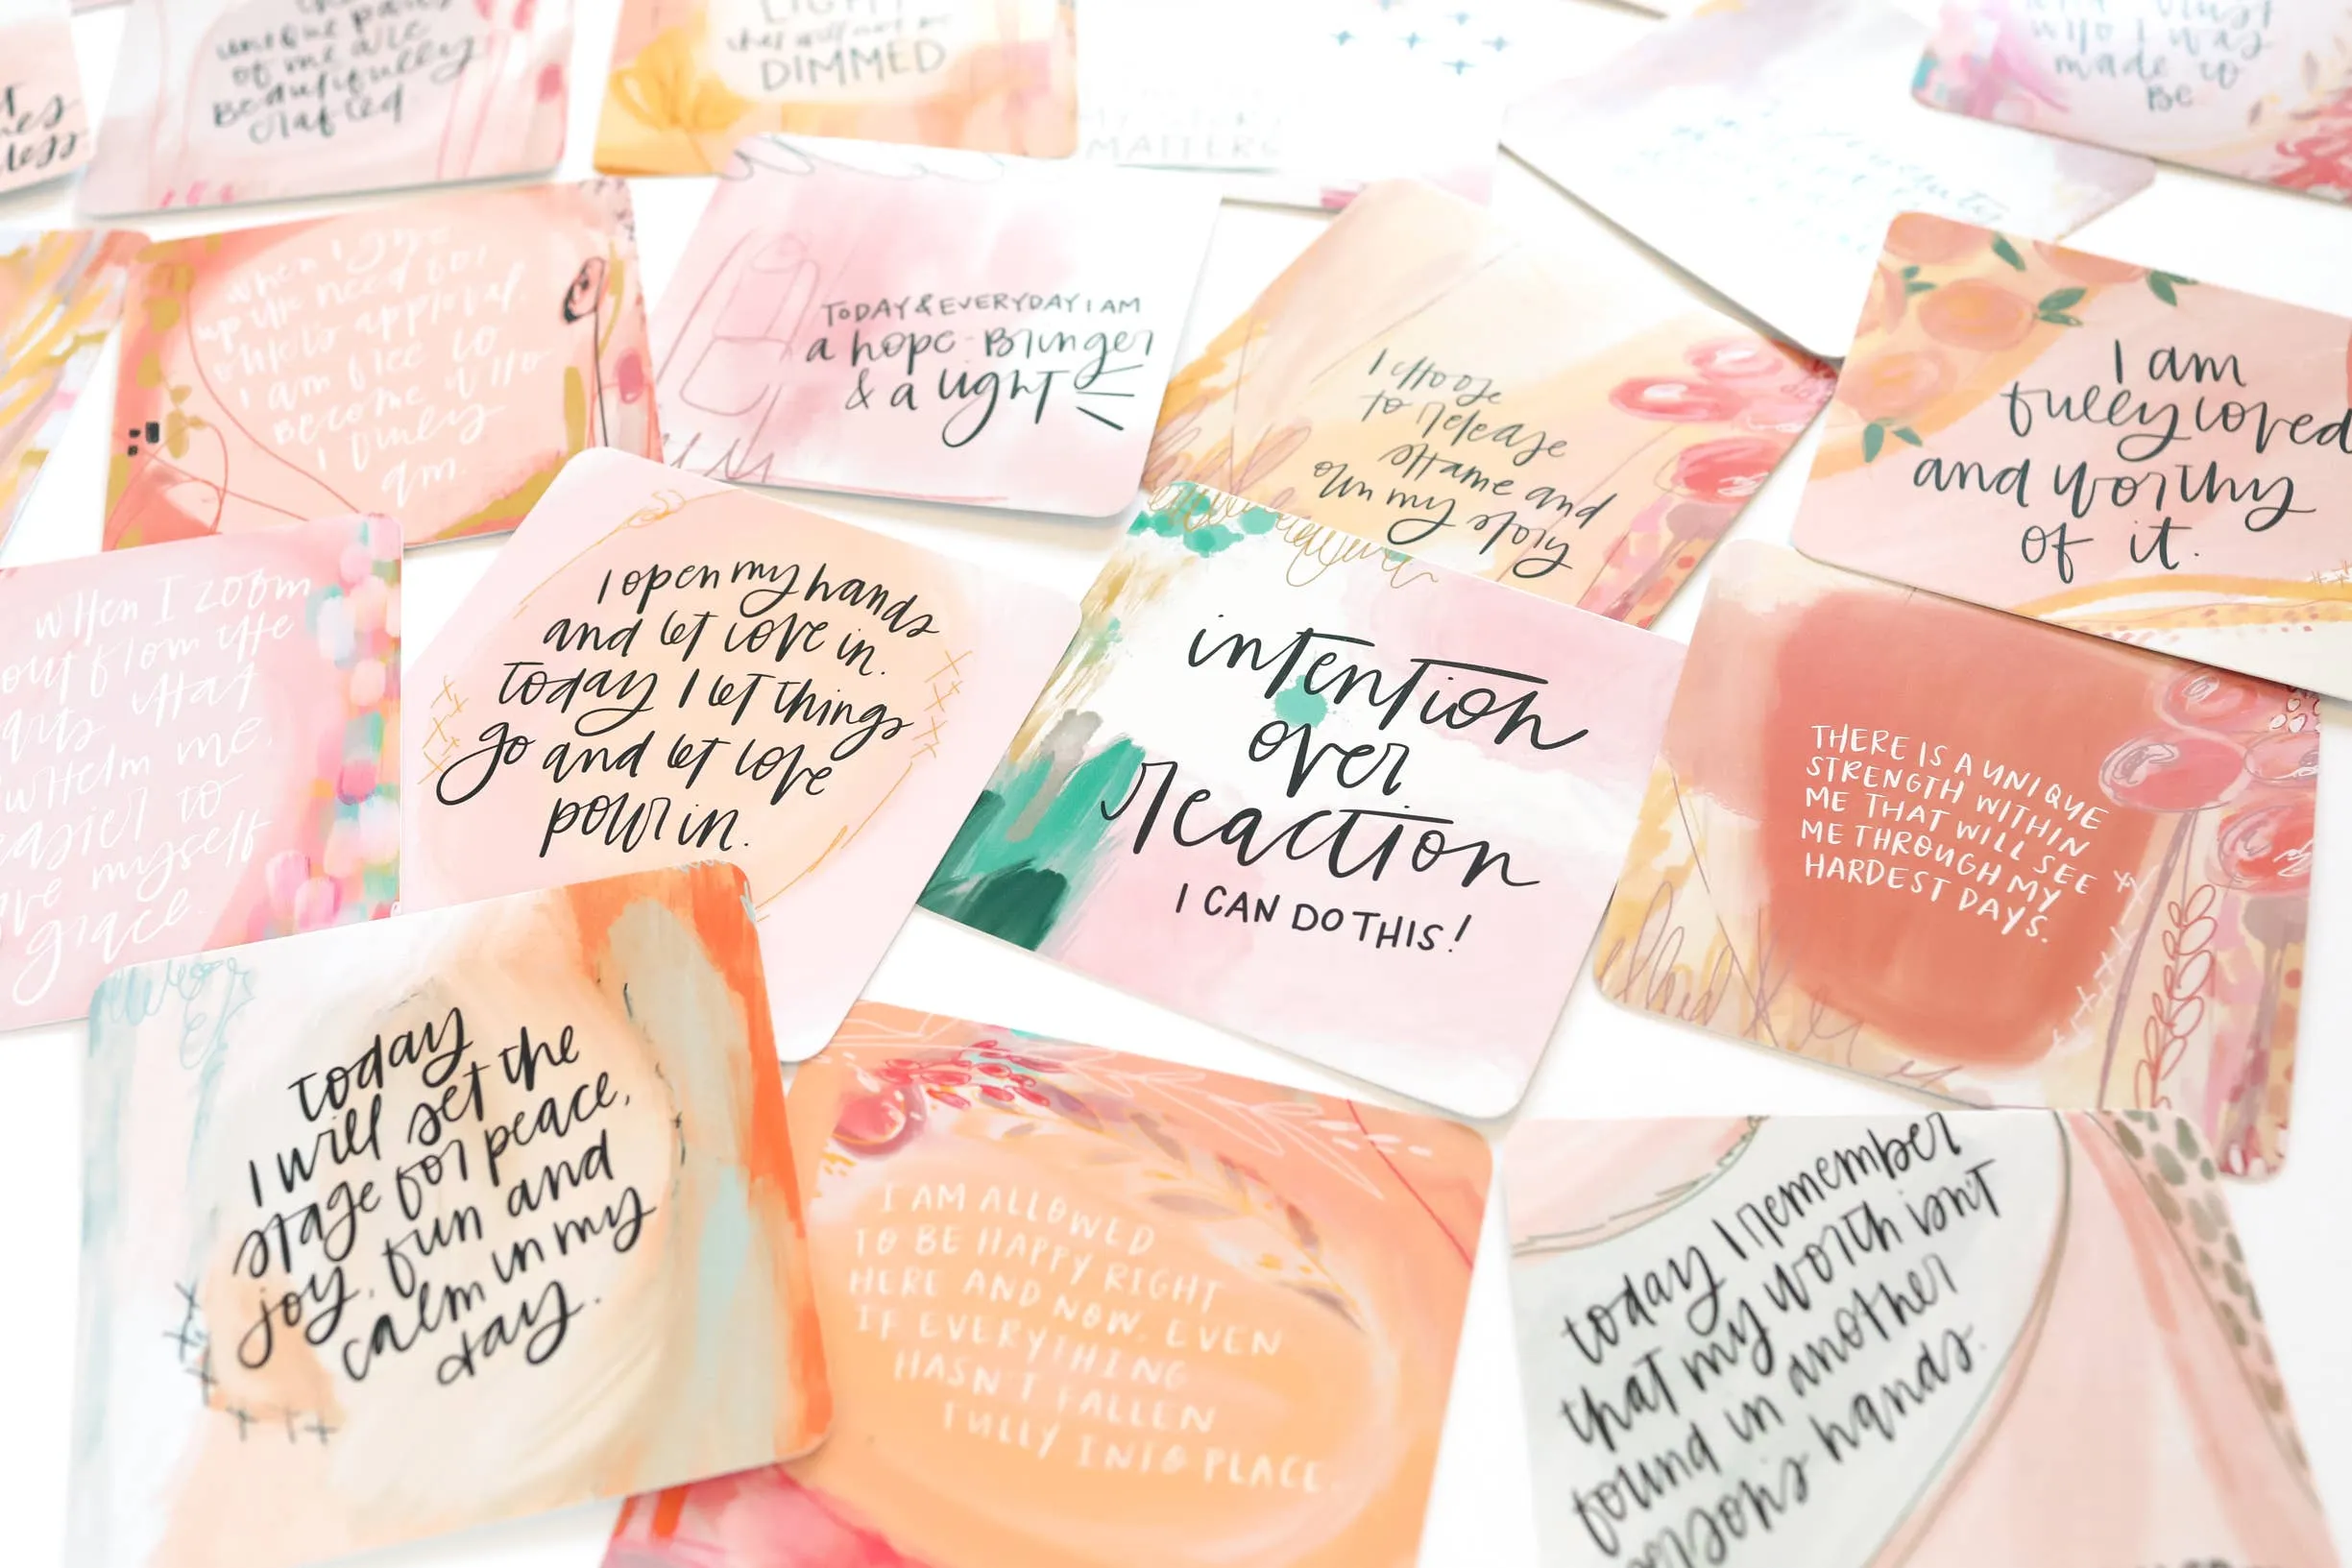 unique parts
of me are
beautifully
crafted
LIGHT
that will not be
DIMMED
MY STORY
MATTERS
who I was
made to
Be
When I give
up the need for
other's approval,
I am free to
become who
I truly
am.
TODAY & EVERYDAY I AM
a hope-Bringer
& a light
I choose
to release
shame and
own my story
I am
fully loved
and worthy
of it.
when I zoom
out from the
that
me,
easier to
myself
grace.
I open my hands
and let love in.
today I let things
go and let love
pour in.
intention
over
reaction
I CAN DO THIS!
THERE IS A UNIQUE
STRENGTH WITHIN
ME THAT WILL SEE
ME THROUGH MY
HARDEST DAYS.
today
I will set the
stage for peace,
joy, fun and
calm in my
day.
I AM ALLOWED
TO BE HAPPY RIGHT
HERE AND NOW. EVEN
IF EVERYTHING
HASN'T FALLEN
FULLY INTO PLACE.
today I remember
that my worth isn't
found in another
person's hands.